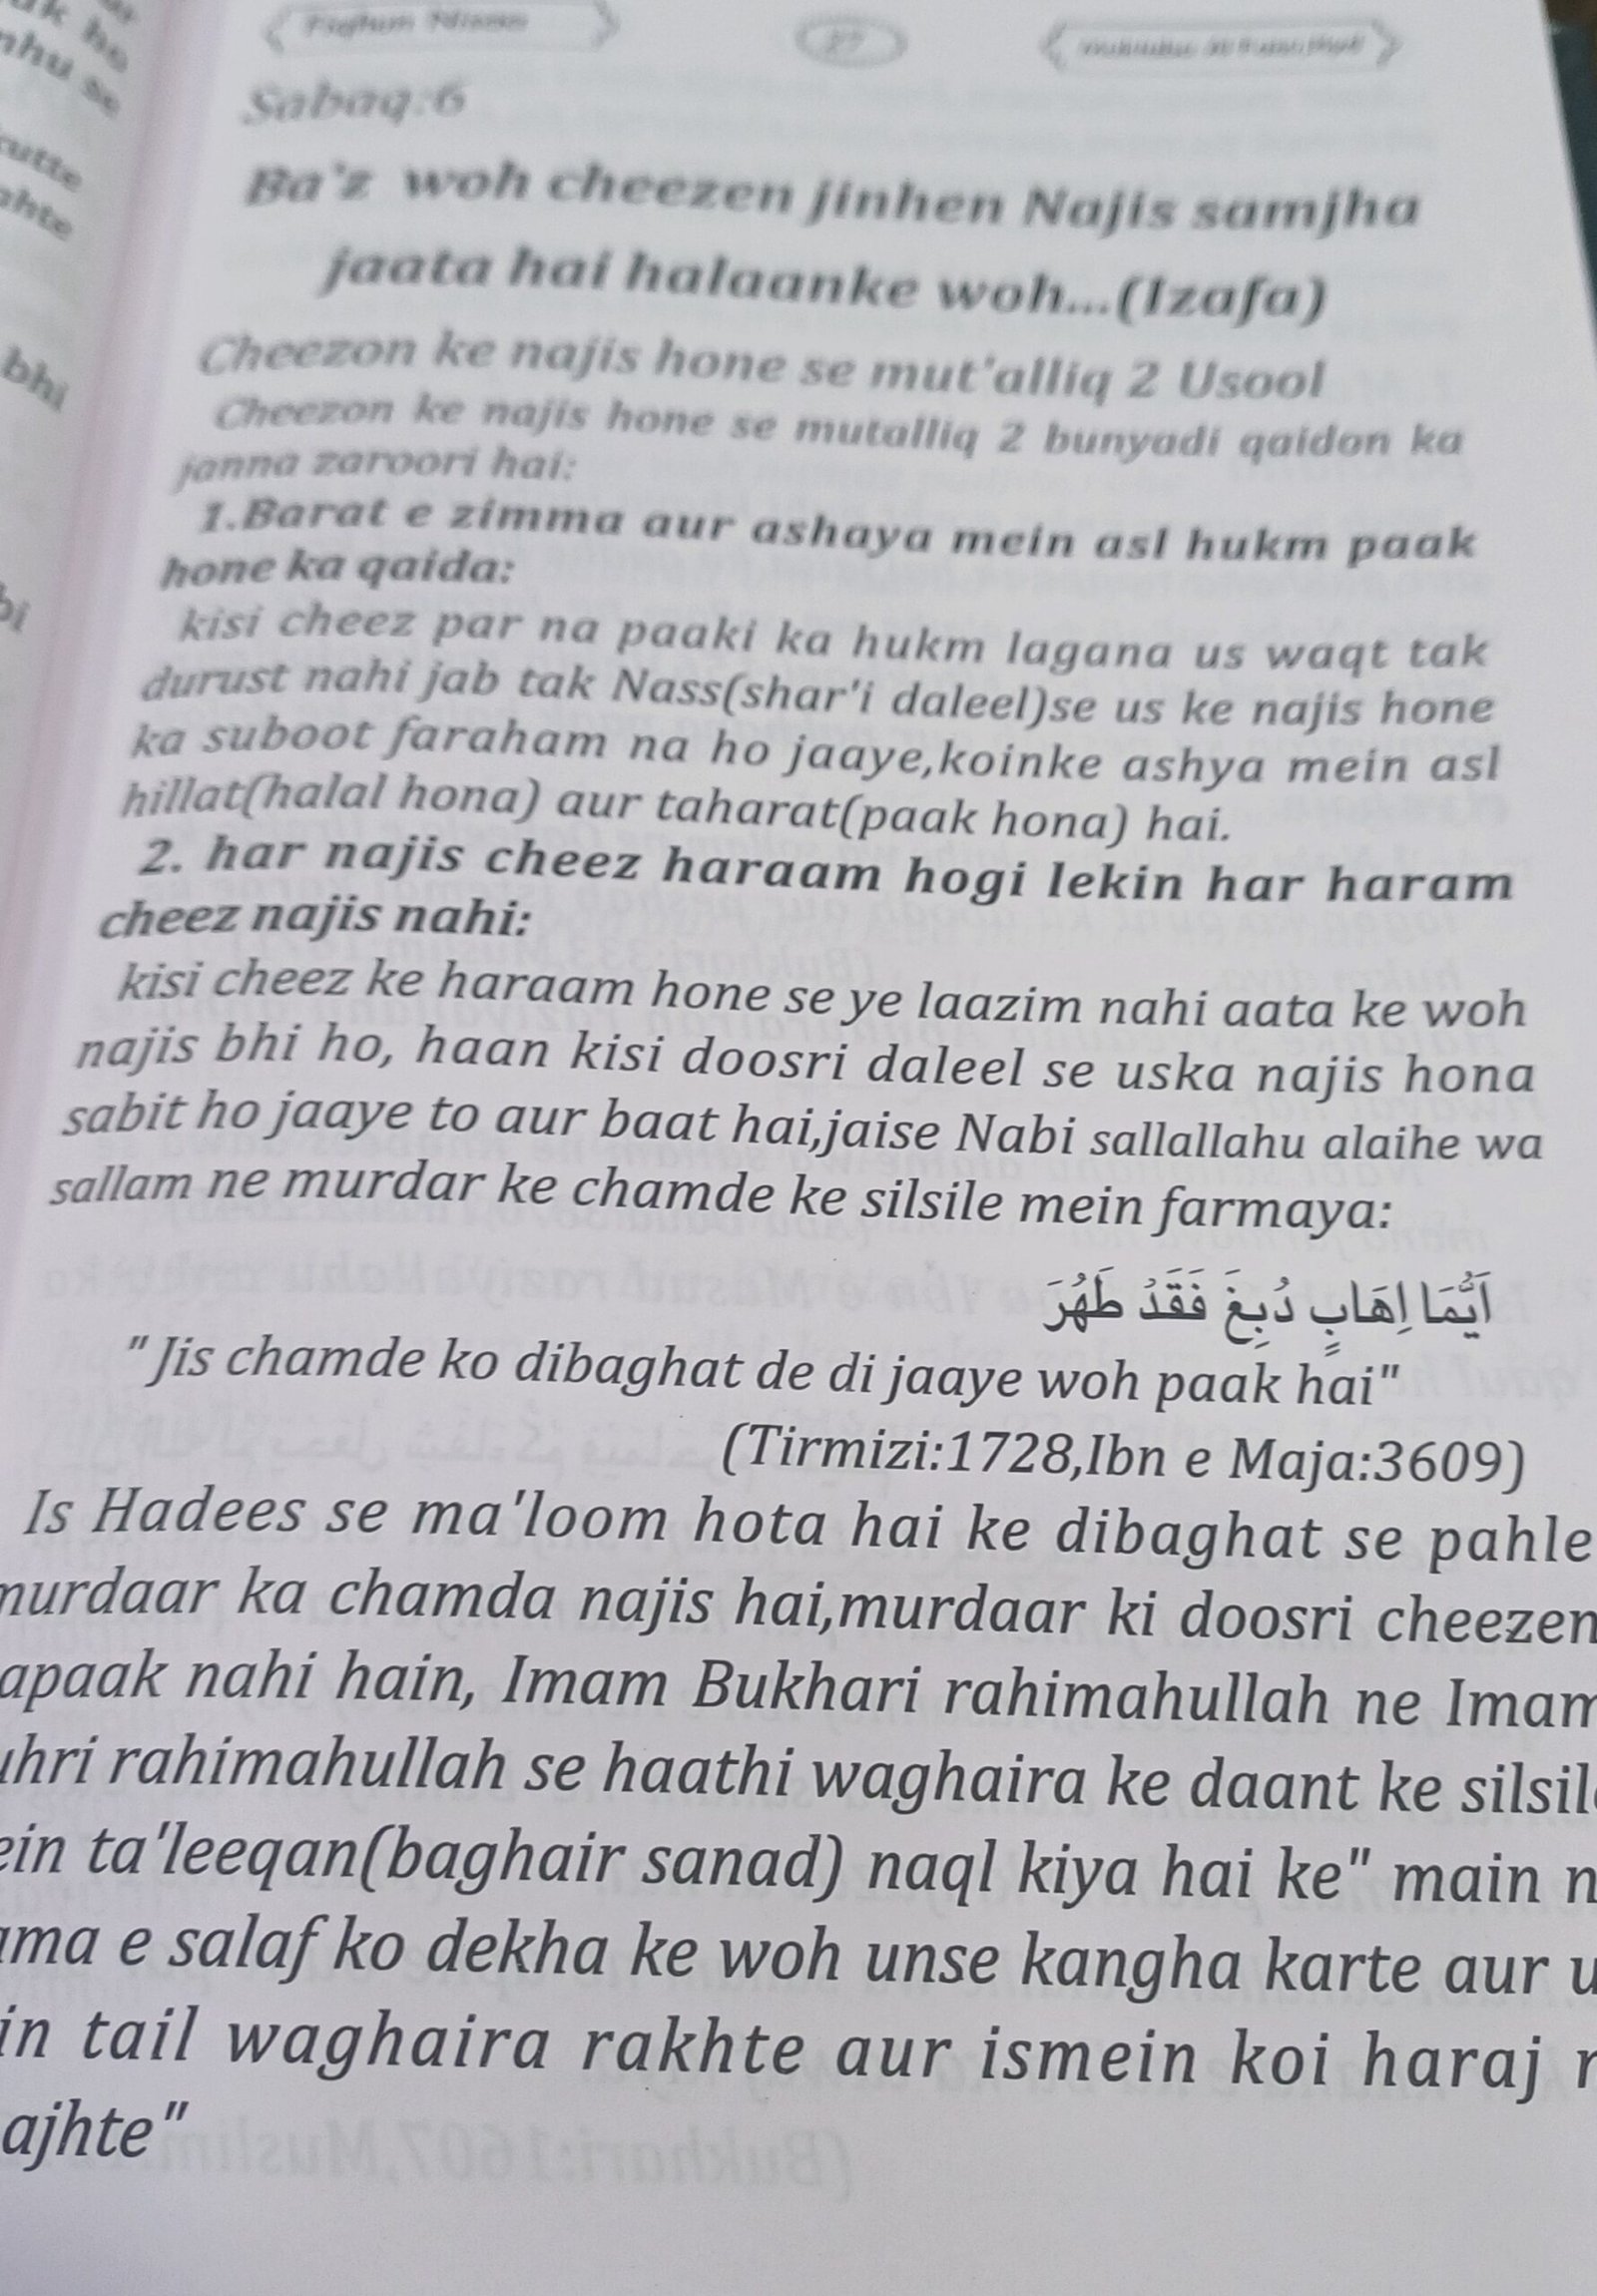 27
Sabaq:6
Ba'z woh cheezen jinhen Najis samjha
jaata hai halaanke woh...(Izafa)
Cheezon ke najis hone se mut'alliq 2 Usool
Cheezon ke najis hone se mutalliq 2 bunyadi qaidon ka
janna zaroori hai:
1.Barat e zimma aur ashaya mein asl hukm paak
hone ka qaida:
kisi cheez par na paaki ka hukm lagana us waqt tak
durust nahi jab tak Nass(shar'i daleel)se us ke najis hone
ka suboot faraham na ho jaaye,koinke ashya mein asl
hillat(halal hona) aur taharat(paak hona) hai.
2. har najis cheez haraam hogi lekin har haram
cheez najis nahi:
kisi cheez ke haraam hone se ye laazim nahi aata ke woh
najis bhi ho, haan kisi doosri daleel se uska najis hona
sabit ho jaaye to aur baat hai,jaise Nabi sallallahu alaihe wa
sallam ne murdar ke chamde ke silsile mein farmaya:
اَيُّمَا اِهَابٍ دُبِغَ فَقَدْ طَهُرَ
"Jis chamde ko dibaghat de di jaaye woh paak hai"
(Tirmizi:1728,Ibn e Maja:3609)
Is Hadees se ma'loom hota hai ke dibaghat se pahle
murdaar ka chamda najis hai,murdaar ki doosri cheezen
apaak nahi hain, Imam Bukhari rahimahullah ne Imam
uhri rahimahullah se haathi waghaira ke daant ke silsile
ein ta'leeqan(baghair sanad) naql kiya hai ke" main n
ama e salaf ko dekha ke woh unse kangha karte aur u
in tail waghaira rakhte aur ismein koi haraj n
ajhte"